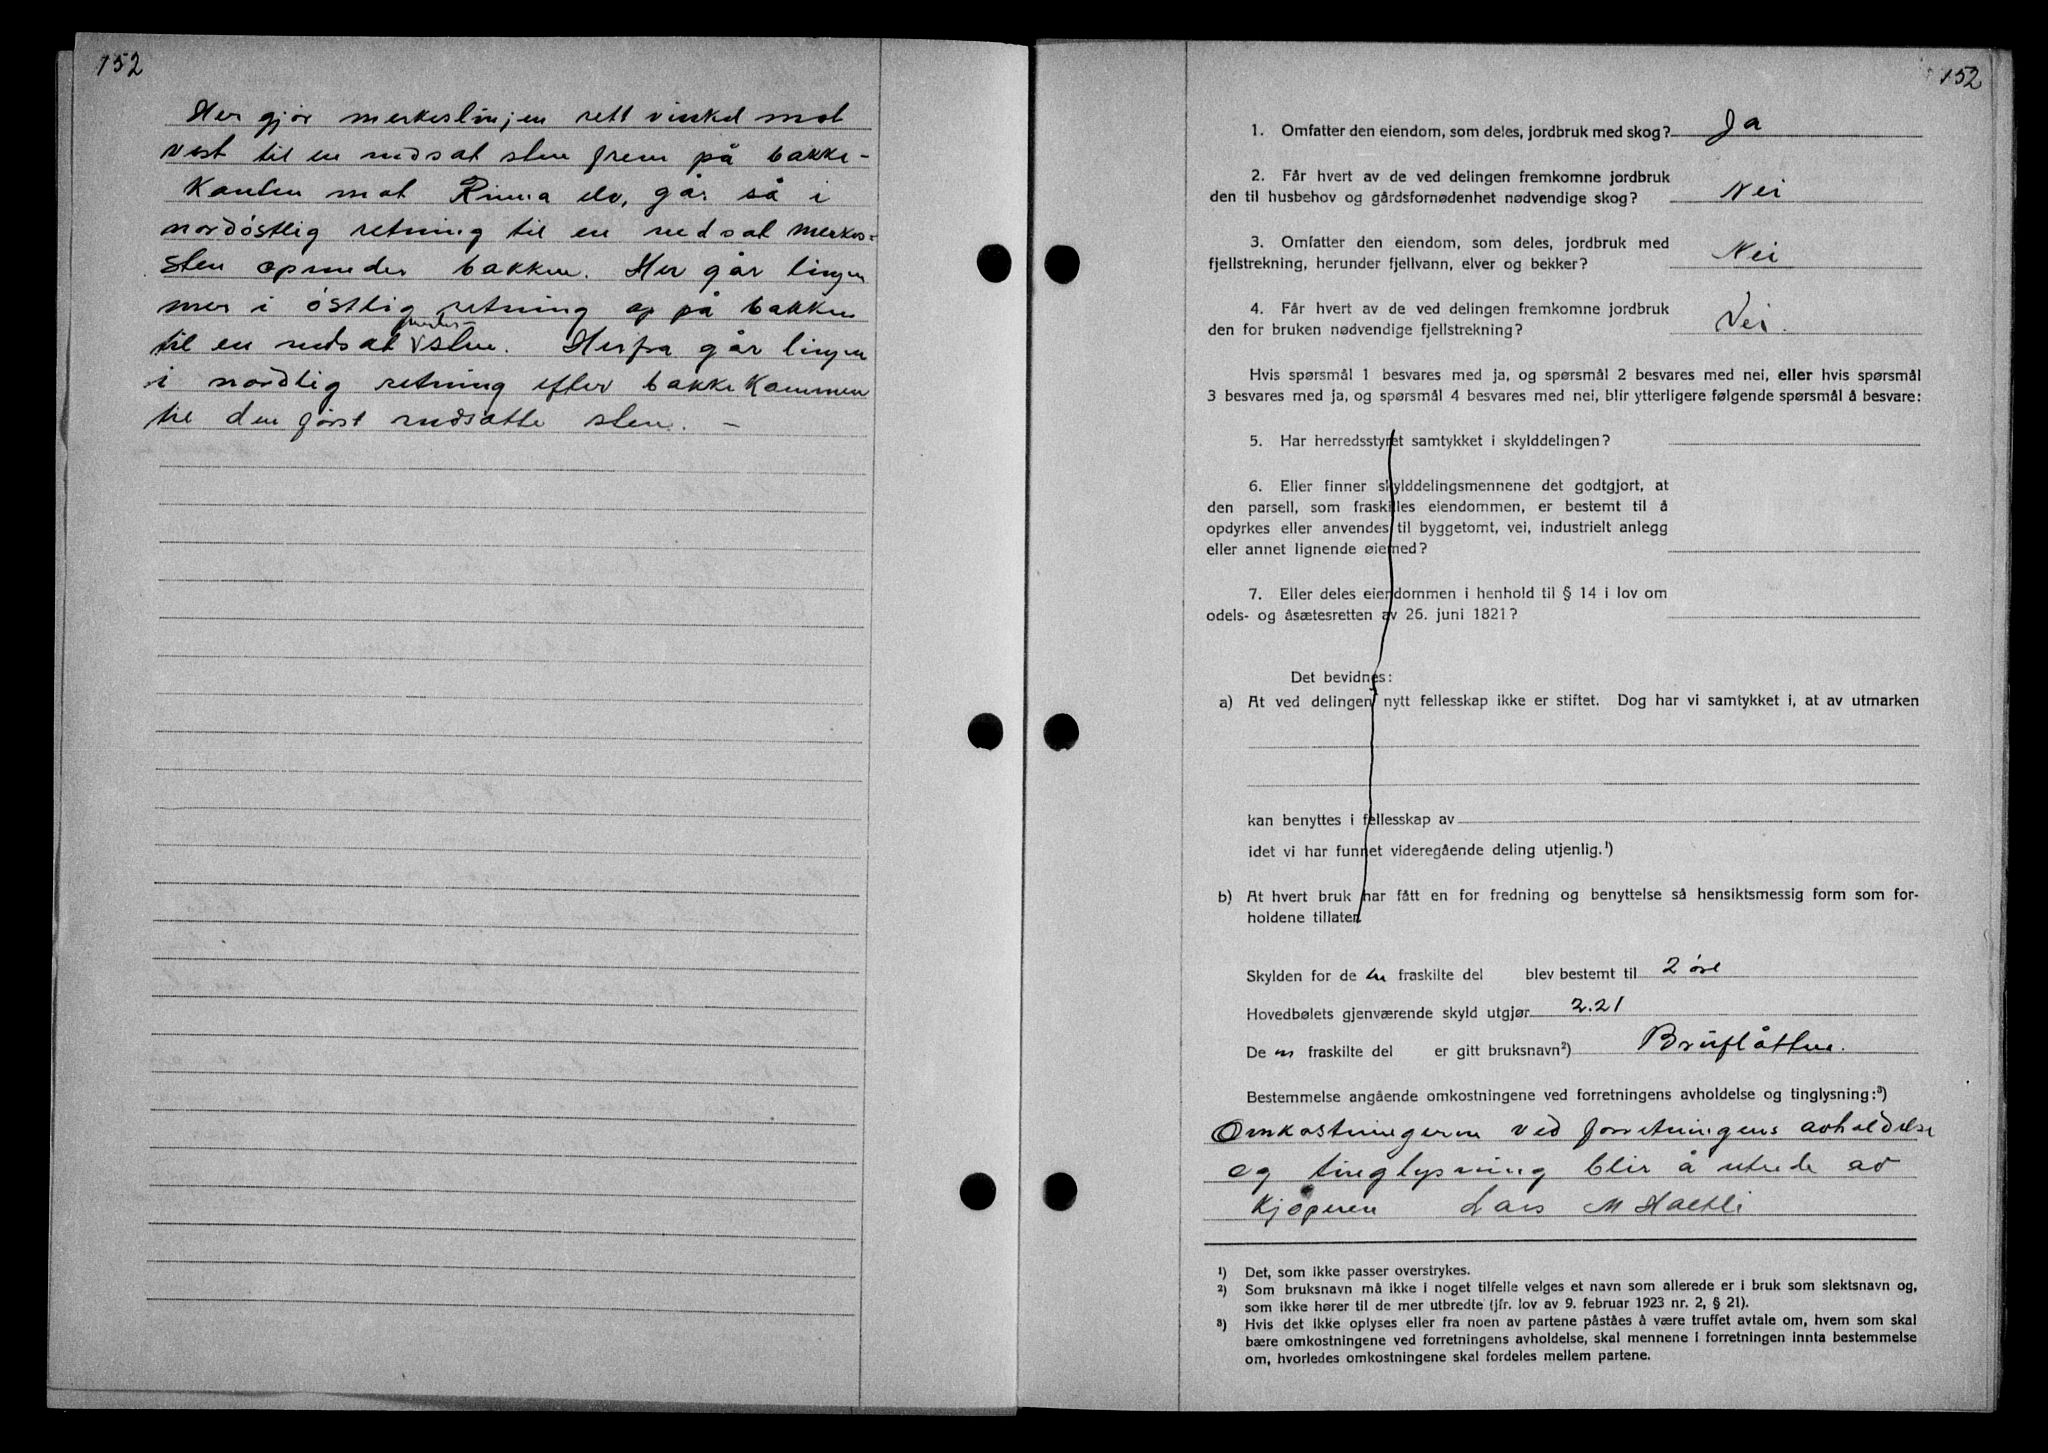 152
Her gjør merkeslinjen rett vinkel mot
vest til en nedsat sten frem på bakke-
kanten mot Rinna elv, går så i
nordöstlig retning til en nedsat merkes-
sten opunder bakken. Her går linjen
mer i östlig retning op på bakken
til en nedsat merkesten. Herfra går linjen
i nordlig retning efter bakkekammen
til den først nedsatte sten. -
152
1. Omfatter den eiendom, som deles, jordbruk med skog? Ja
2. Får hvert av de ved delingen fremkomne jordbruk
den til husbehov og gårdsfornødenhet nødvendige skog? Nei
3. Omfatter den eiendom, som deles, jordbruk med
fjellstrekning, herunder fjellvann, elver og bekker? Nei
4. Får hvert av de ved delingen fremkomne jordbruk
den for bruken nødvendige fjellstrekning? Nei.
Hvis spørsmål 1 besvares med ja, og spørsmål 2 besvares med nei, eller hvis spørsmål
3 besvares med ja, og spørsmål 4 besvares med nei, blir ytterligere følgende spørsmål å besvare:
5. Har herredsstyret samtykket i skylddelingen?
6. Eller finner skylddelingsmennene det godtgjort, at
den parsell, som fraskilles eiendommen, er bestemt til å
opdyrkes eller anvendes til byggetomt, vei, industrielt anlegg
eller annet lignende øiemed?
7. Eller deles eiendommen i henhold til § 14 i lov om
odels- og åsætesretten av 26. juni 1821?
Det bevidnes:
a) At ved delingen nytt fellesskap ikke er stiftet. Dog har vi samtykket i, at av utmarken
kan benyttes i fellesskap av
idet vi har funnet videregående deling utjenlig.¹)
b) At hvert bruk har fått en for fredning og benyttelse så hensiktsmessig form som for-
holdene tillater.
Skylden for de n fraskilte del blev bestemt til 2 øre
Hovedbølets gjenværende skyld utgjør 2.21
De n fraskilte del er gitt bruksnavn²) Bruflåtten.
Bestemmelse angående omkostningene ved forretningens avholdelse og tinglysning:³)
Omkostningerne ved forretningens avholdelse
og tinglysning blir å utrede av
kjøperen Lars M Haetli
¹) Det, som ikke passer overstrykes.
²) Som bruksnavn må ikke i noget tilfelle velges et navn som allerede er i bruk som slektsnavn og,
som ikke hører til de mer utbredte (jfr. lov av 9. februar 1923 nr. 2, § 21).
³) Hvis det ikke oplyses eller fra noen av partene påståes å være truffet avtale om, hvem som skal
bære omkostningene ved forretningens avholdelse, skal mennene i forretningen innta bestemmelse
om, hvorledes omkostningene skal fordeles mellem partene.